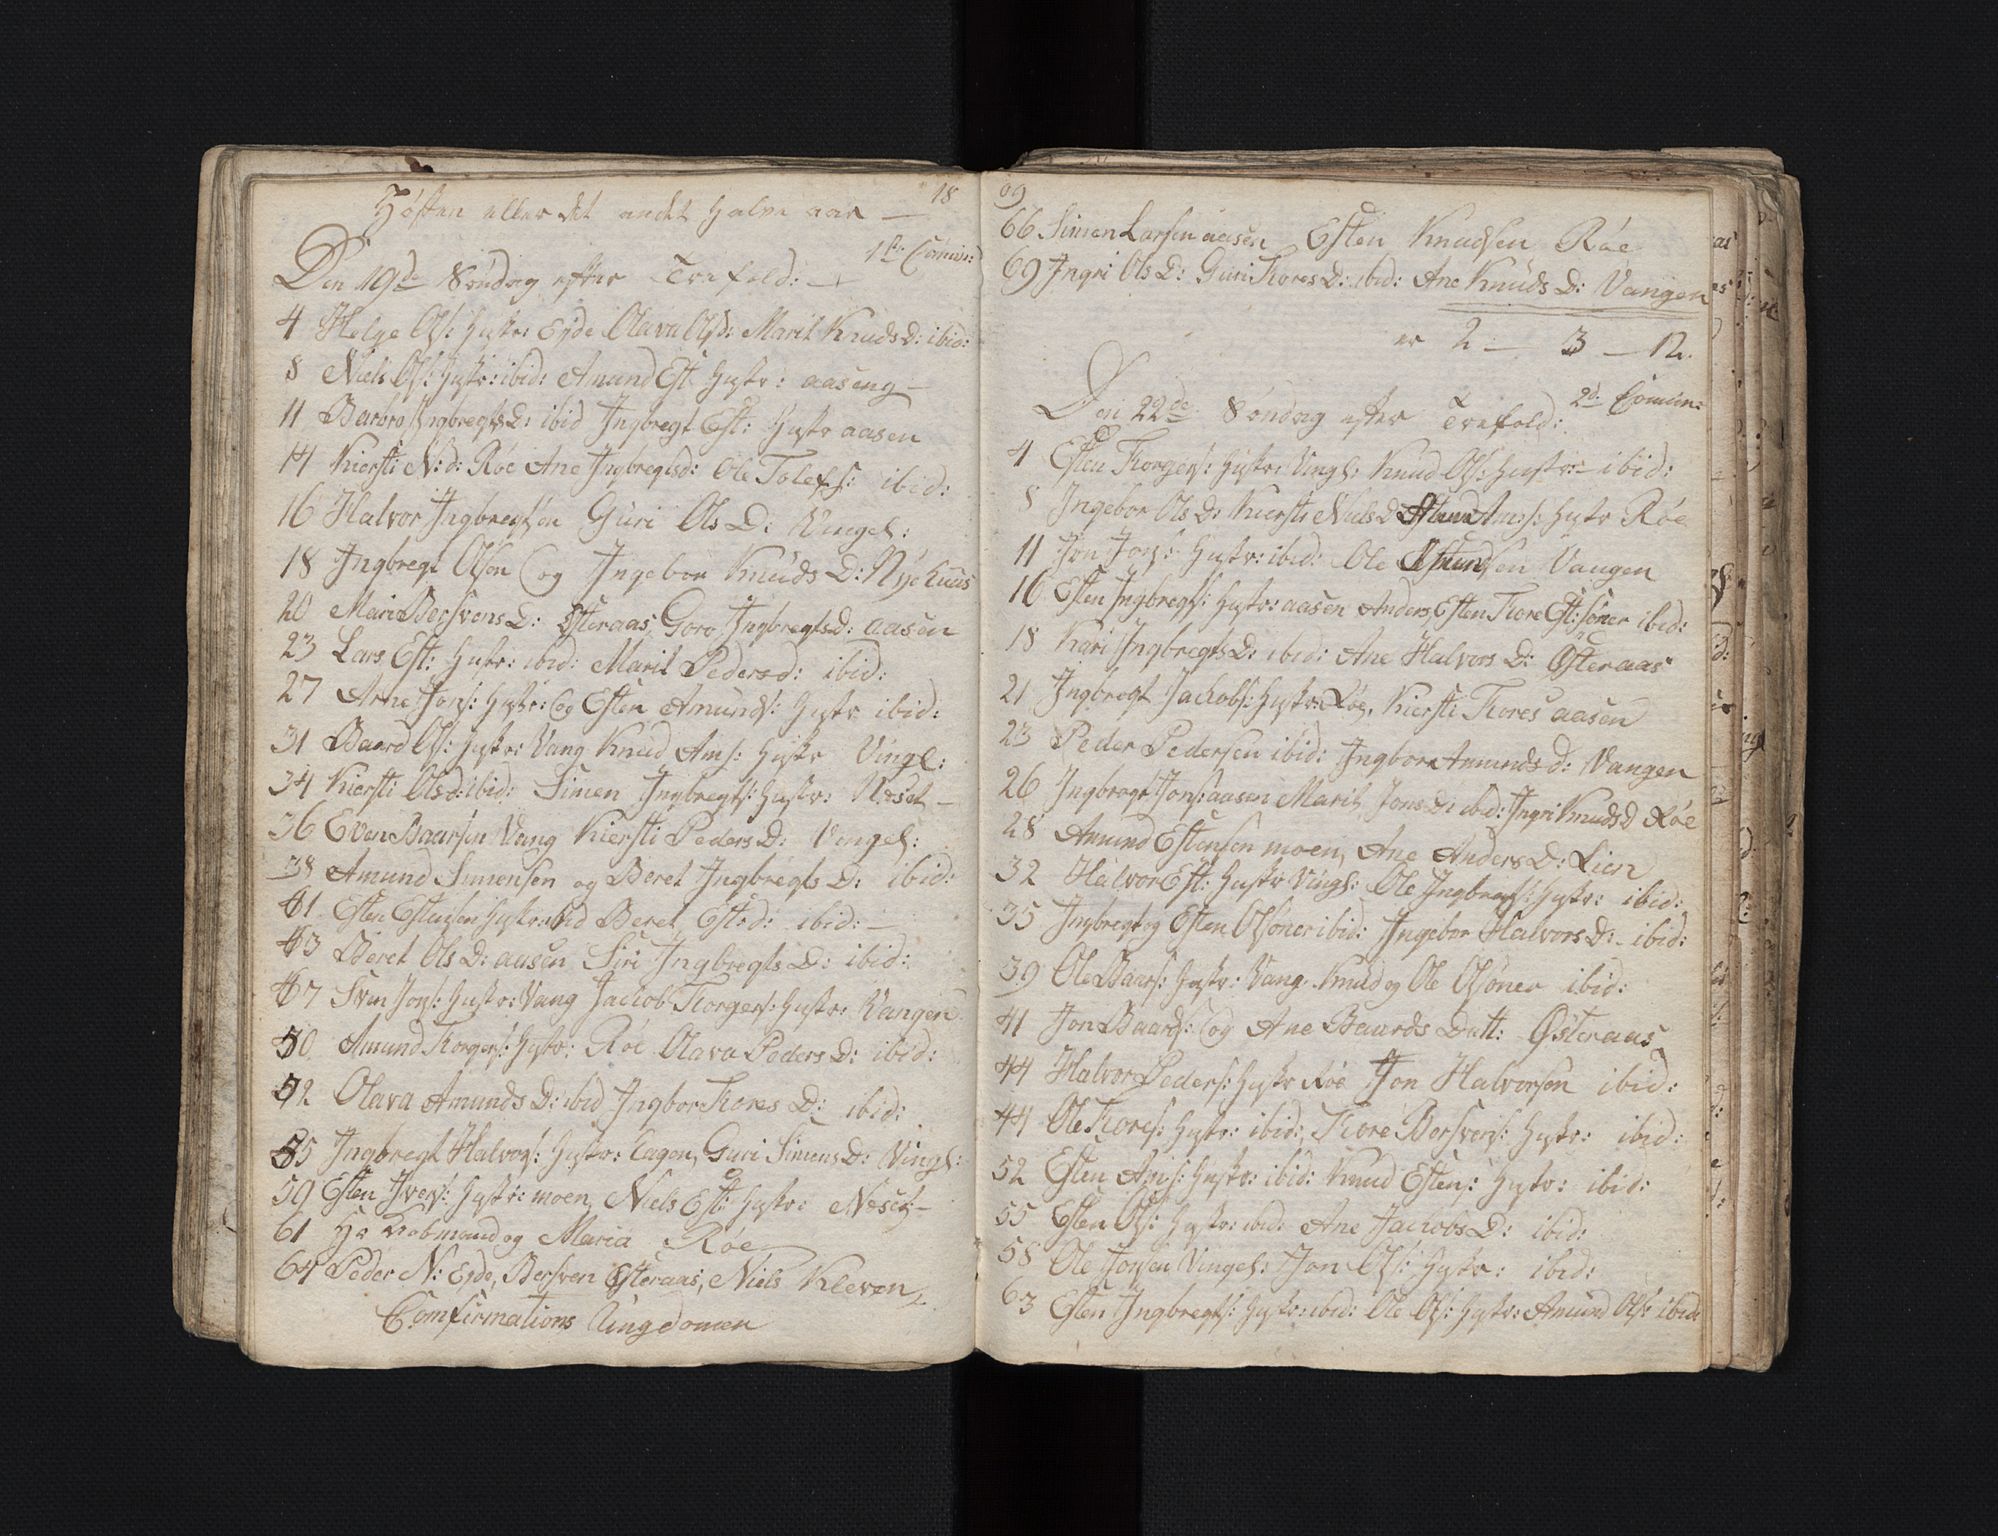 Høsten eller det andet halve aar — 18
1ste Comun:
Den 19de Søndag efter Trefold: —
4 Helge Ols: Hustr: Eyde Olava Olsd: Marit Knuds D: ibid:
8 Niels Ols: Hustr: ibid: Amund Est: Hustr: aaseng —
11 Barbro Ingbregts D: ibid Ingbregt Est: Hustr aasen
14 Kiersti N: d: Røe Ane Ingbregtsd: Ole Tolefs: ibid:
16 Halvor Ingbregtsen Guri Ols D: Vingel:
18 Ingbregt Olsen og Ingebor Knuds D: Nyehuus
20 Mari Bersvens D: Østeraas, Goro Ingbregts D: aasen
23 Lars Est: Hustr: ibid: Marit Pedersd: ibid:
27 Arne Jons: Hustr: og Esten Amunds: Hustr ibid:
31 Baard Ols: Hustr: Vang Knud Ams: Hustr Vingl:
34 Kiersti Olsd: ibid: Simen Ingbregts: Hustr: Næset —
36 Even Baarsen Vang Kiersti Peders D: Vingel:
38 Amund Simensen og Beret Ingbregts D: ibid:
41 Esten Estensen Hustr: ibid Beret Estsd: ibid: —
43 Beret Ols D: aasen Siri Ingbregts D: ibid:
47 Sven Jons: Hustr: Vang Jacob Torgers: Hustr: Vangen
50 Amund Torgers: Hustr: Røe Olava Peders D: ibid:
52 Olava Amunds D: ibid Ingbor Tores D: ibid:
55 Ingbregt Halvors: Hustr: Eagen, Guri Simens D: Vingl:
59 Esten Ivers: Hustr: moen, Niels Est: Hustr: Næset —
61 Hr og Maria Røe
64 Peder N: Eyde, Bersven Østeraas, Niels Kleven,
Comfirmations Ungdomen
09
66 Simen Larsen aasen Esten Knudsen Røe
69 Ingri Ols D: Guri Tores D: ibid: Ane Knuds D: Vangen
er 2 — 3 — 12.
2d. Comun:
Den 22de Søndag efter Trefold:
4 Esten Torgers: Hustr: Vingl: Knud Ols: Hustr: — ibid:
8 Ingebor Ols D: Kiersti Niels D Ams: Hustr Røe
11 Jon Jons: Hustr: ibid: Ole Vangen
16 Esten Ingbregts: Hustr: aasen Anders, Esten Tore Est: søner ibid:
18 Kari Ingbregts D: ibid: Ane Halvors D: Østeraas
21 Ingbregt Jackobs: Hustr: Røe, Kiersti Tores aasen
23 Peder Pedersen ibid: Ingbor Amunds d: Vangen
26 Ingbregt Jons: aasen Marit Jons D: ibid: Ingri Knuds D Røe
28 Amund Estensen moen, Ane Anders D: Lien
32 Halvor Est: Hustr Vingl: Ole Ingbregts: Hustr: ibid:
35 Ingbregt og Esten Olsøner ibid: Ingebor Halvors D: ibid:
39 Ole Baars: Hustr: Vang. Knud og Ole Olsøner ibid:
41 Jon Baards: og Ane Baards Datt: Østeraas
44 Halvor Peders: Hustr Røe Jon Halvorsen ibid:
44 Ole Tores: Hustr: ibid:, Tore Bersvens: Hustr: ibid:
52 Esten Ams: Hustr: ibid: Knud Estens: Hustr: ibid:
55 Esten Ols: Hustr: ibid: Ane Jachobs D: ibid:
58 Ole Jonsen Vingel: Jon Ols: Hustr: ibid:
63 Esten Ingbregts: Hustr: ibid: Ole Ols: Hustr: Amund Ols: ibid